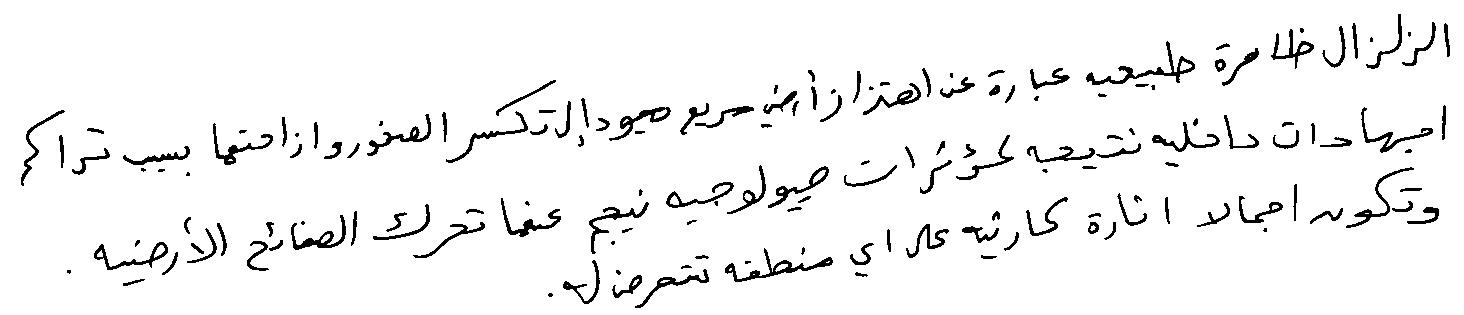 الزلزال ظاهرة طبيعيه عبارة عن اهتزاز أرضي سريع ويعود إلى تكسر الصخور وازاحتها بسبب تراكم
اجهادات داخليه نتيجه لمؤثرات جيولوجيه ينجم عنها تحرك الصفائح الأرضيه .
وتكون اجمالا اثارة كارثيه على اي منطقه تتعرض له .